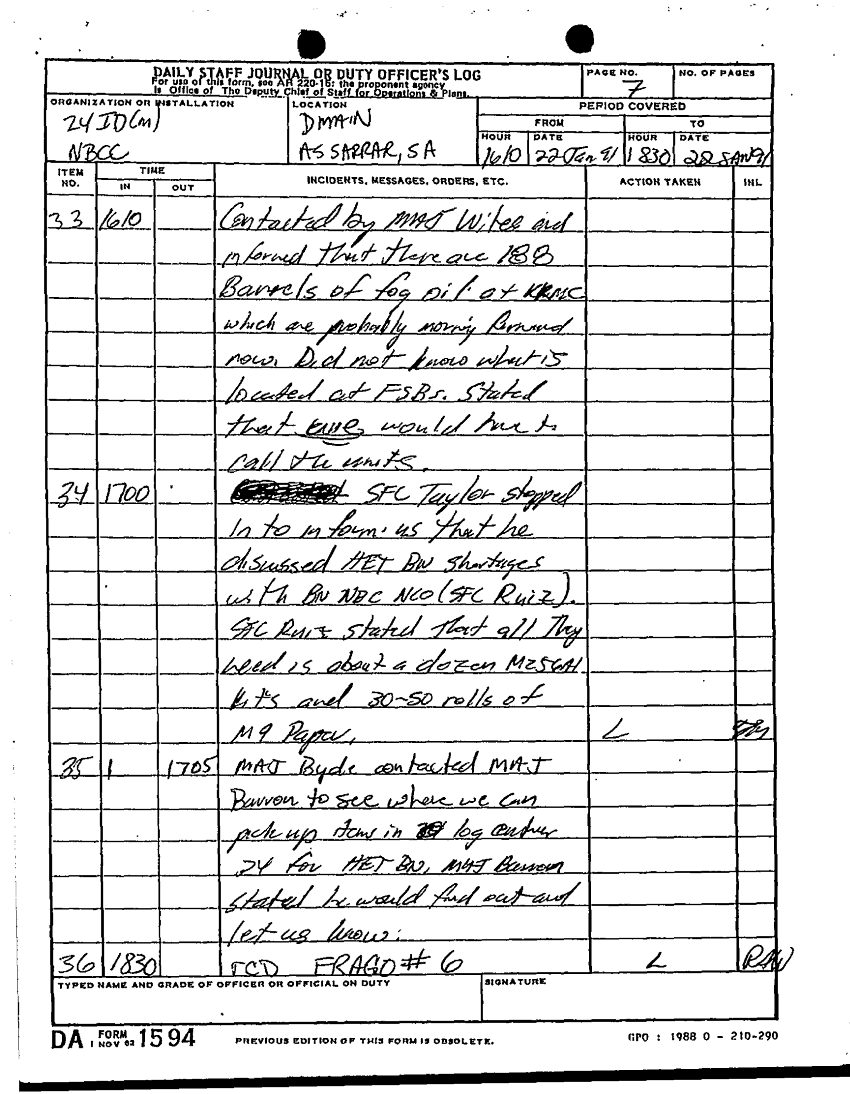 DAILY STAFF JOURNAL OR DUTY OFFICER'S LOG
For use of this form, see AR 220-15; the proponent agency
is Office of The Deputy Chief of Staff for Operations & Plans.
PAGE NO.
7
NO. OF PAGES
ORGANIZATION OR INSTALLATION
24 ID(M)
NBCC
LOCATION
DMAIN
AS SARRAR, SA
PERIOD COVERED
FROM
TO
HOUR
DATE
HOUR
DATE
1610
22 Jan 91
1830
22 JAN 91
ITEM NO.
TIME
IN
OUT
INCIDENTS, MESSAGES, ORDERS, ETC.
ACTION TAKEN
INL
33 1610 Contacted by MAJ Wiles and
informed that there are 188
Barrels of fog oil at KKMC
which are probably moving forward
now. Did not know what is
located at FSBs. Stated
that would have to
call the units.
34 1700 SFC Taylor stopped
in to inform us that he
discussed HET BN shortages
with BN NBC NCO (SFC Ruiz).
SFC Ruiz stated that all they
need is about a dozen M256A1
kits and 30-50 rolls of
M9 Paper. L
35 1 1705 MAJ Byde contacted MAJ
Barron to see where we can
pick up items in log center
24 for HET BN, MAJ Barron
stated he would find out and
let us know.
36 1830 TCD FRAGO # 6 L RAW
TYPED NAME AND GRADE OF OFFICER OR OFFICIAL ON DUTY
SIGNATURE
DA FORM 1 NOV 62 1594
PREVIOUS EDITION OF THIS FORM IS OBSOLETE.
GPO : 1988 O - 210-290